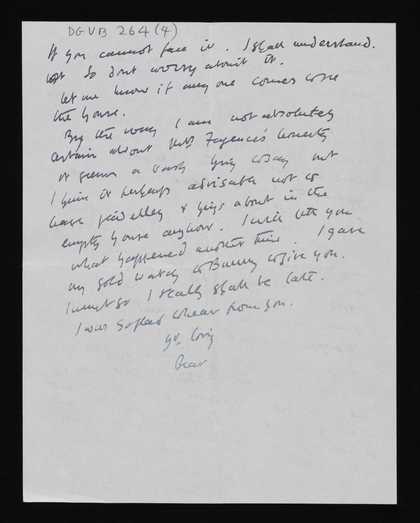 DGVB 264 (4)
If you cannot face it. I shall understand.
So dont worry about it.
let me know if any one comes over
the house.
By the way I am not absolutely
certain about Mrs honesty
it seems a thing to say but
I think it perhaps advisable not to
leave jewellery & things about in the
empty house anyhow. I will tell you
what happened another time. I gave
my gold watch to Bunny to give you.
I must go I really shall be late.
I was so glad to hear from you.
yr. loving
Bear